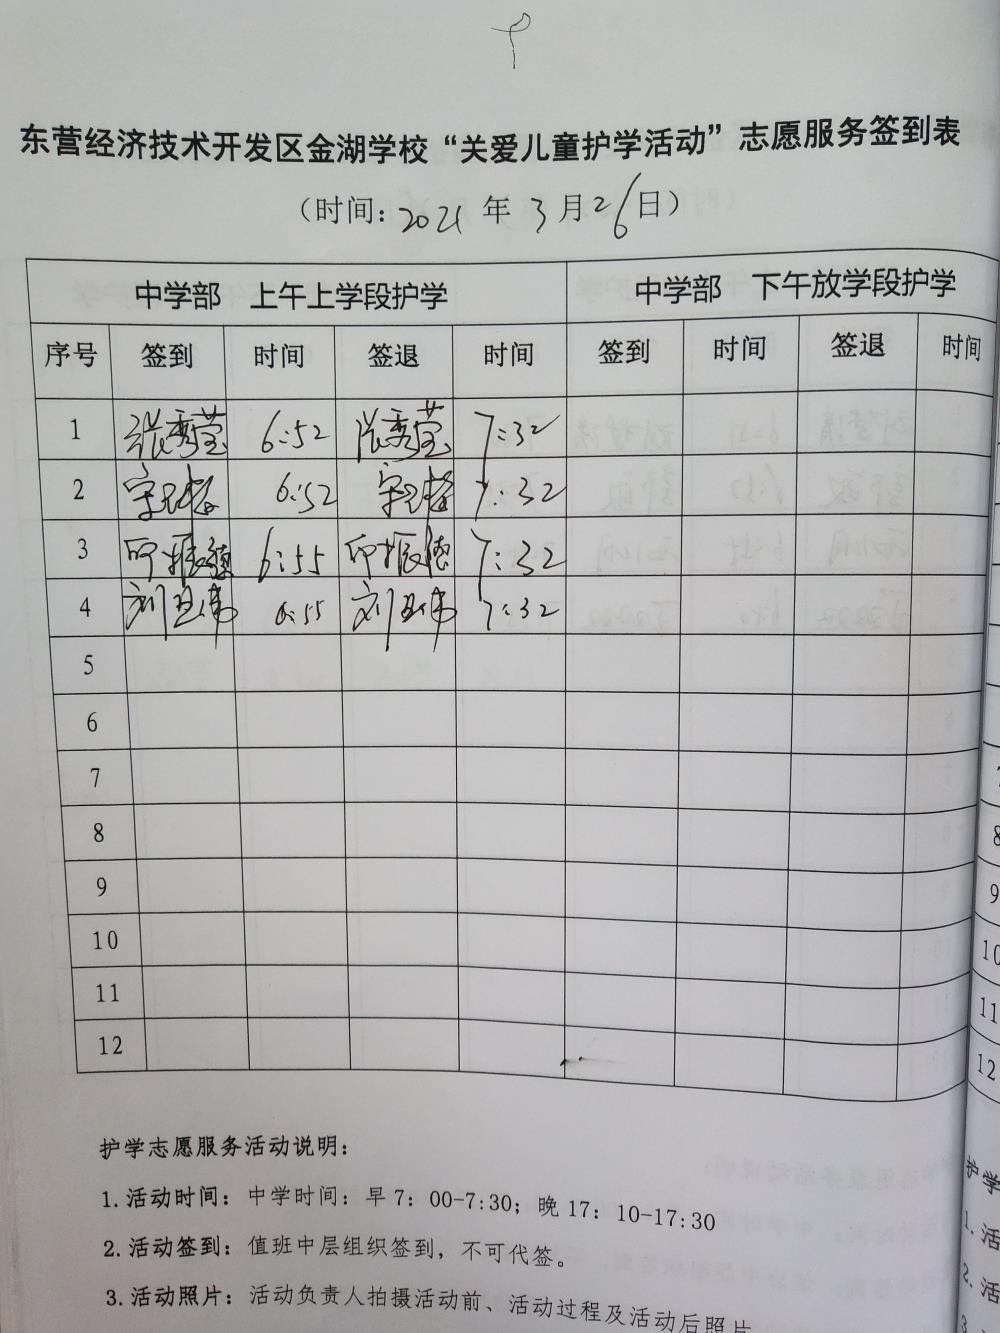 东营经济技术开发区金湖学校“关爱儿童护学活动”志愿服务签到表
（时间：2021 年 3 月 26 日）
中学部 上午上学段护学 中学部 下午放学段护学
序号 签到 时间 签退 时间 签到 时间 签退 时间
1 张秀莹 6:52 张秀莹 7:32
2 6:52 7:32
3 6:55 7:32
4 刘卫伟 6:55 刘卫伟 7:32
5
6
7
8
9
10
11
12
护学志愿服务活动说明：
1. 活动时间：中学时间：早 7：00-7:30；晚 17：10-17:30
2. 活动签到：值班中层组织签到，不可代签。
3. 活动照片：活动负责人拍摄活动前、活动过程及活动后照片
8
9
10
11
12
护学
1. 活
2. 活